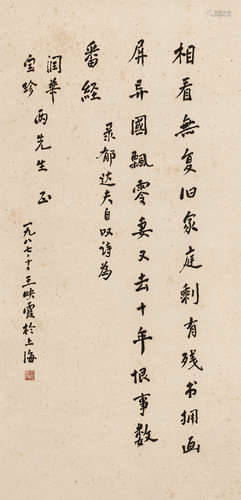 相看無复旧家庭剩有残书拥画
屏异國飘零妻又去十年恨事数
番经
录郁达夫自叹诗为
润华
宝珍 两先生正
一九八七·十·王映霞於上海